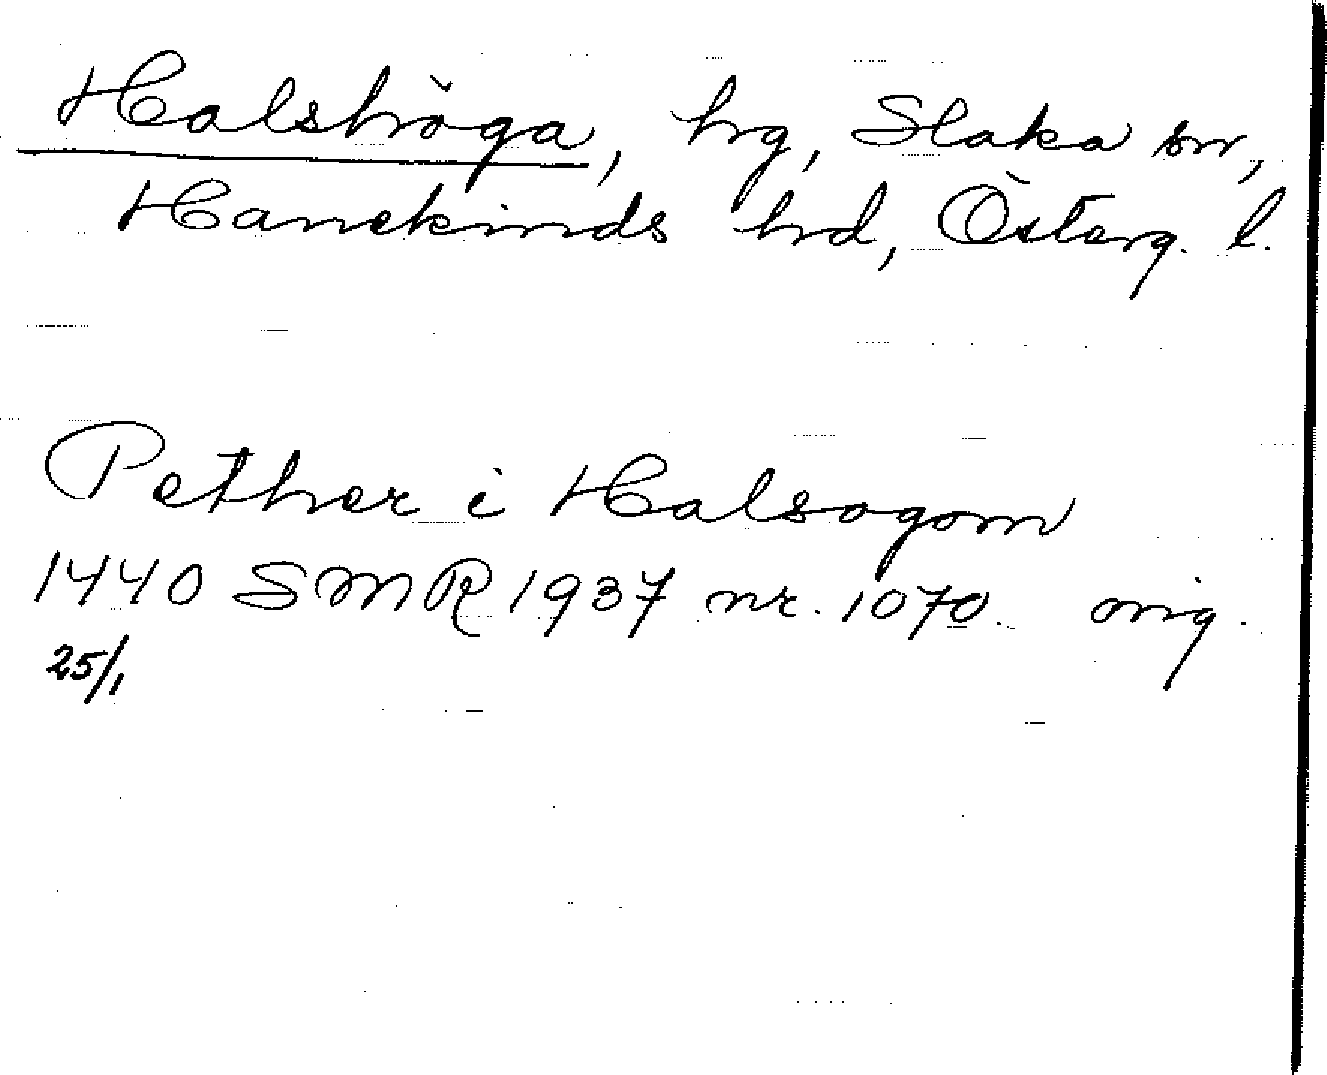 Halshöga, hg, Slaka sn,
Hanekinds hrd, Österg. l.
Pether i Halsogom
1440 SMR 1937 nr. 1070. orig.
25/1